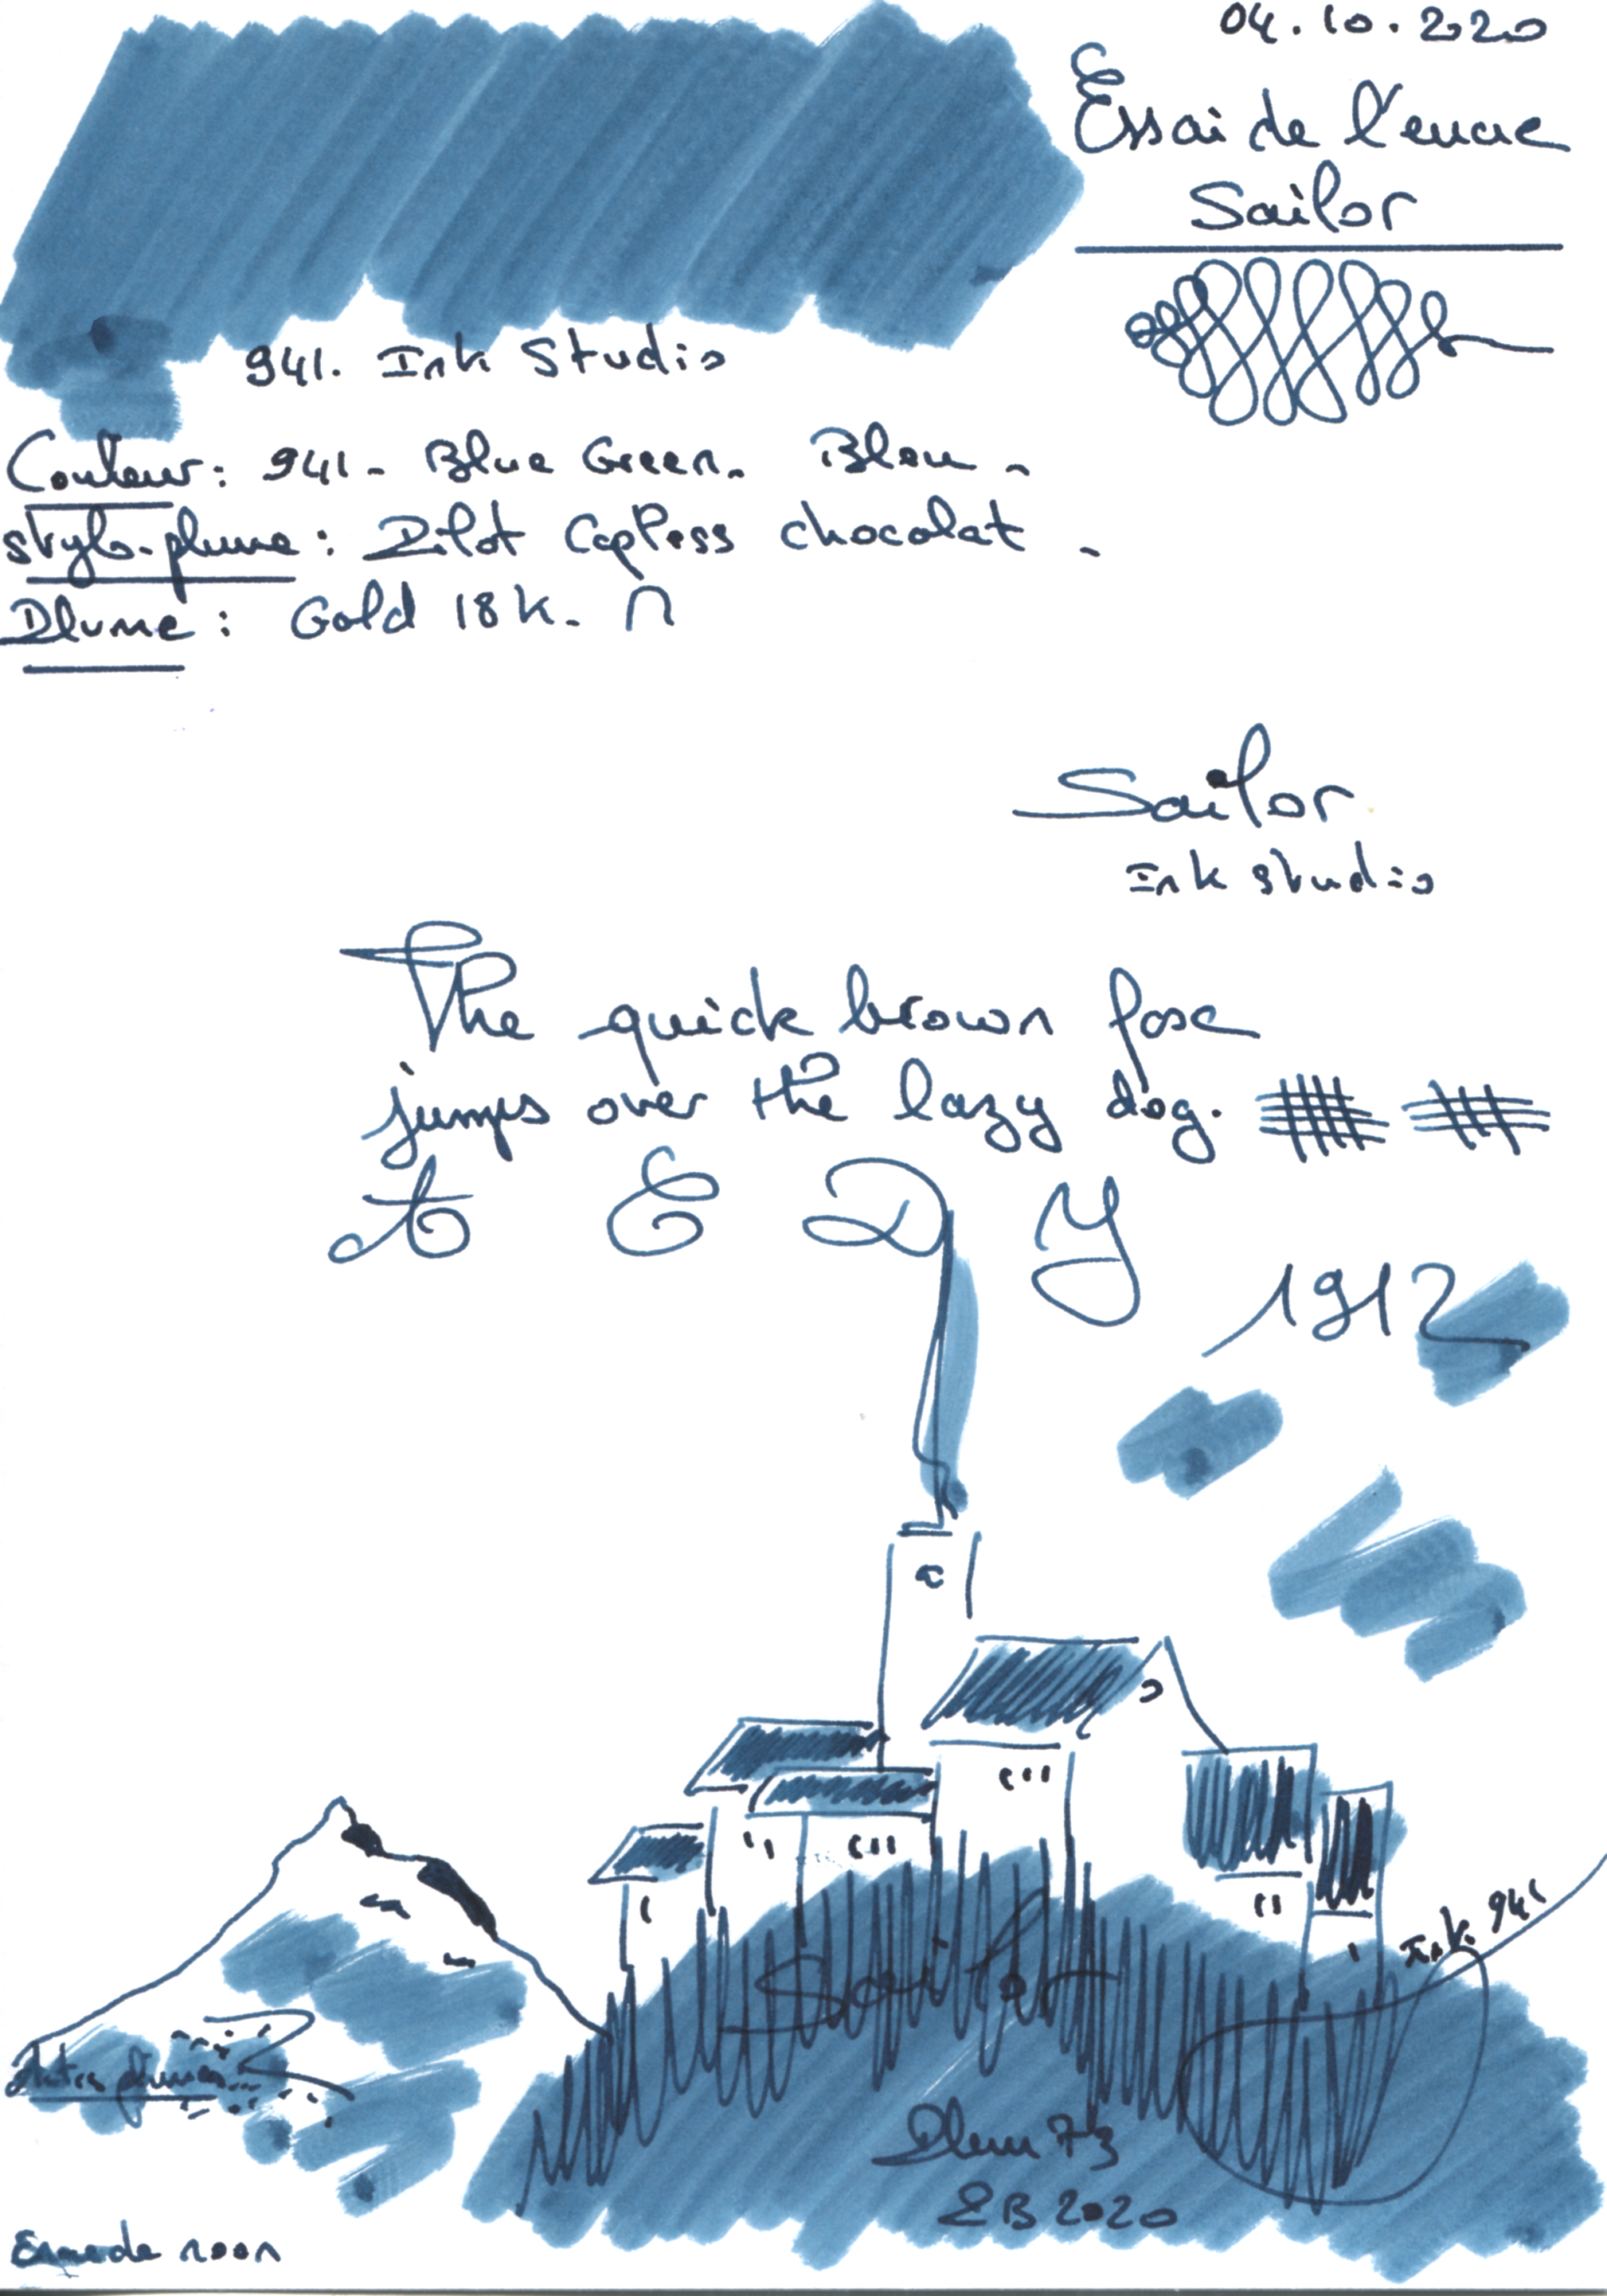 04.10.2020
Essai de l'encre
Sailor
941. Ink Studio
Couleur: 941- Blue Green. Bleu -
stylo-plume: Pilot Capless chocolat -
Plume: Gold 18K. M
Sailor
Ink Studio
The quick brown fox
jumps over the lazy dog.
A E D Y
1912
Ink. 941
Sailor
Plum 73
EB 2020